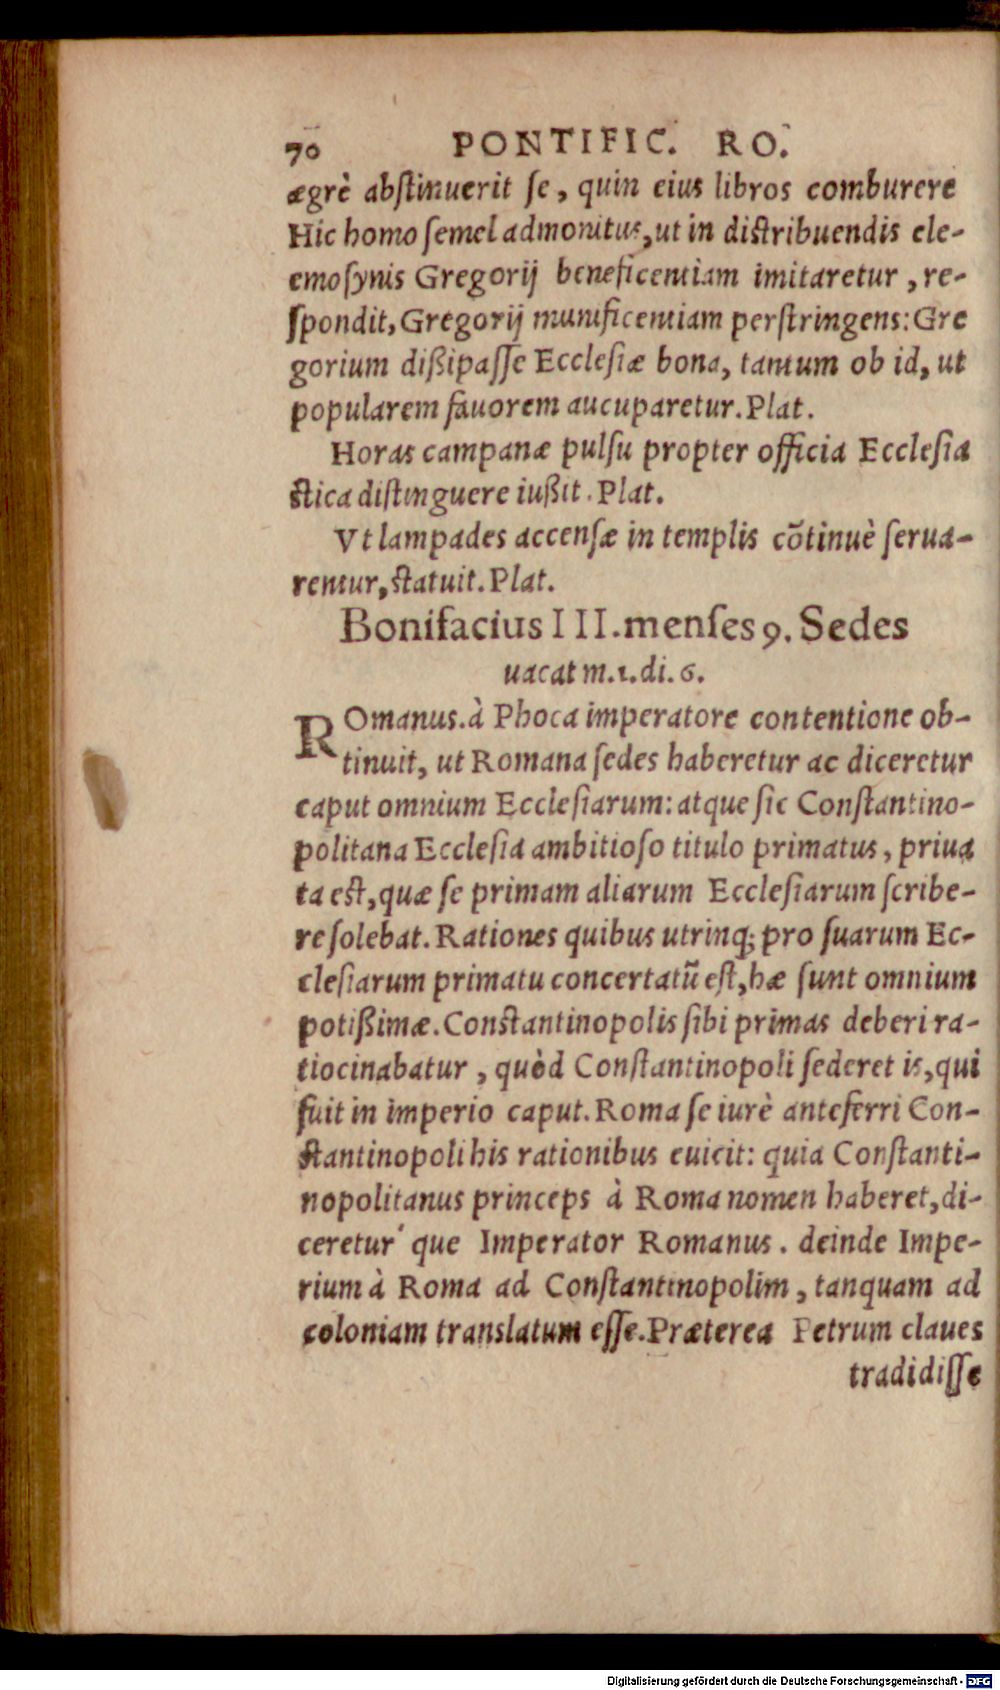 70 PONTIFIC. RO.
ægrè abſtinuerit ſe, quin eius libros comburere
Hic homo ſemel admonitus, ut in diſtribuendis ele-
emoſynis Gregorij beneficentiam imitaretur, re-
ſpondit, Gregorij munificentiam perſtringens: Gre
gorium dißipaſſe Eccleſiæ bona, tantum ob id, ut
popularem fauorem aucuparetur. Plat.
Horas campanæ pulſu propter officia Eccleſia
ſtica diſtinguere iußit. Plat.
Vt lampades accenſæ in templis cõtinuè ſerua-
rentur, ſtatuit. Plat.
Bonifacius III. menſes 9. Sedes
uacat m.1.di.6.
ROmanus. à Phoca imperatore contentione ob-
tinuit, ut Romana ſedes haberetur ac diceretur
caput omnium Eccleſiarum: atque ſic Conſtantino-
politana Eccleſia ambitioſo titulo primatus, priua
ta eſt, quæ ſe primam aliarum Eccleſiarum ſcribe-
re ſolebat. Rationes quibus utrinq; pro ſuarum Ec-
cleſiarum primatu concertatũ eſt, hæ ſunt omnium
potißimæ. Conſtantinopolis ſibi primas deberi ra-
tiocinabatur, quòd Conſtantinopoli ſederet is, qui
fuit in imperio caput. Roma ſe iurè anteferri Con-
ſtantinopoli his rationibus euicit: quia Conſtanti-
nopolitanus princeps à Roma nomen haberet, di-
ceretur' que Imperator Romanus. deinde Impe-
rium à Roma ad Conſtantinopolim, tanquam ad
coloniam translatum eſſe. Præterea Petrum claues
tradidiſſe
Digitalisierung gefördert durch die Deutsche Forschungsgemeinschaft - DFG